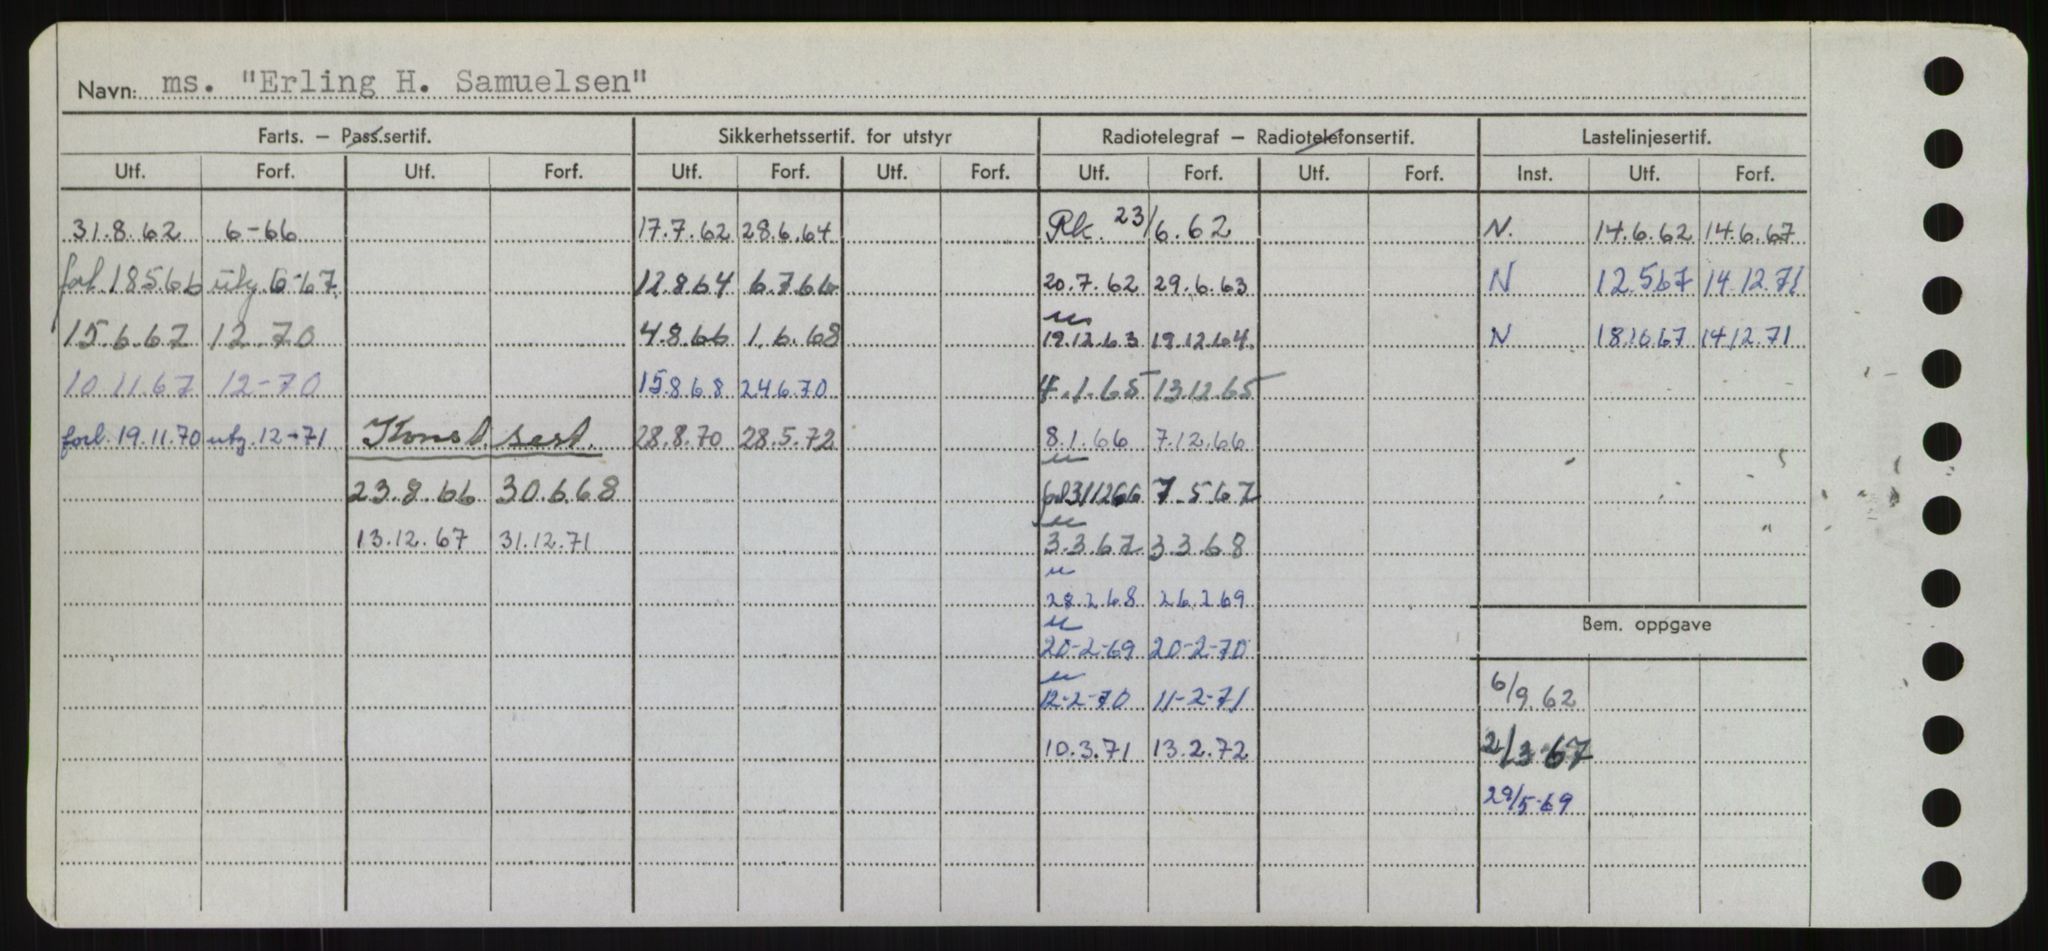 Navn: ms. "Erling H. Samuelsen"
Farts. – Pass.sertif. Sikkerhetssertif. for utstyr Radiotelegraf – Radiotelefonsertif. Lastelinjesertif.
Utf. Forf. Utf. Forf. Utf. Forf. Utf. Forf. Utf. Forf. Utf. Forf. Inst. Utf. Forf.
31.8.62 6-66 17.7.62 28.6.64 Rk. 23/6.62 N. 14.6.62 14.6.67
forl. 18566 utg. 6-67 12.8.64 6.7.66 20.7.62 29.6.63 N 12.567 14.12.71
15.6.67 12.70 4.8.66 1.6.68 19.12.63 19.12.64. N 18.10.67 14.12.71
10.11.67 12-70 15.8.68 24.6.70 4.1.65 13.12.65
forl. 19.11.70 utg. 12-71 Konst. sert. 28.8.70 28.5.72 8.1.66 7.12.66
23.8.66 30.6.68 311266 7.5.67
13.12.67 31.12.71 3.3.67 3.3.68
28.2.68 26.2.69
Bem. oppgave
20-2-69 20-2-70
6/9.62
12-2-70 11-2-71
10.3.71 13.2.72 2/3-67
29/5-69